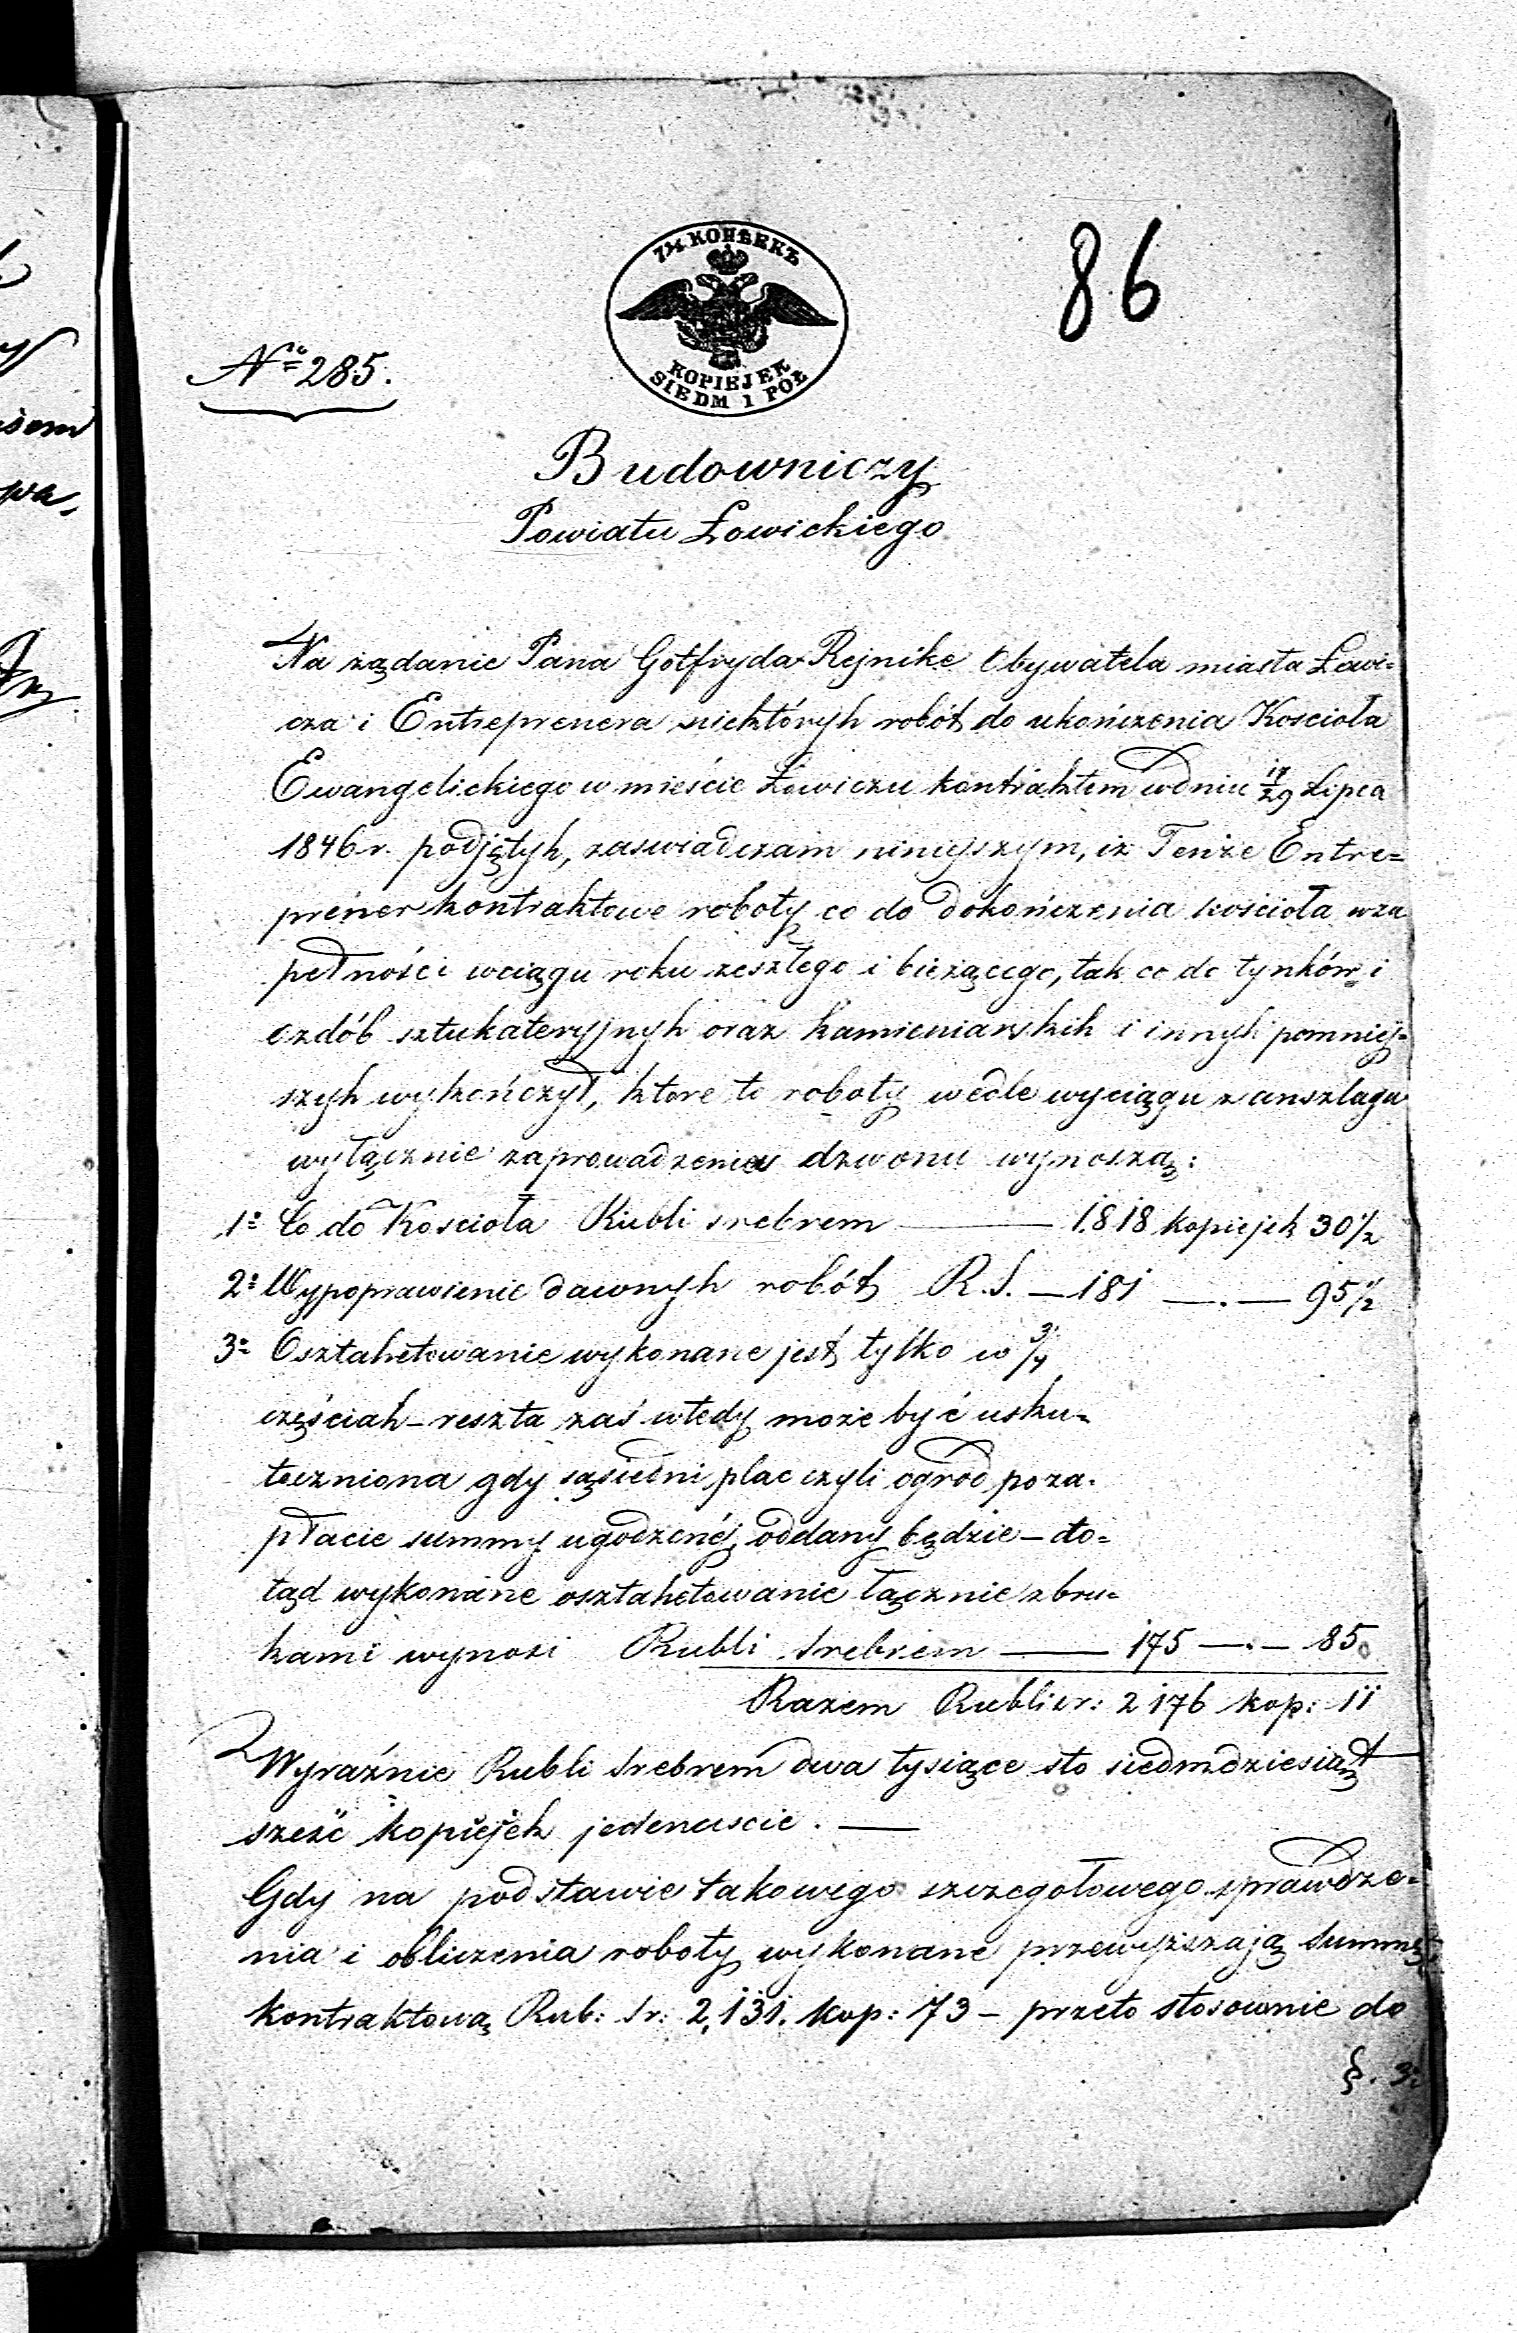 86
7½ КОПѢЕКЪ
KOPIEJEK
SIEDM I PÓŁ
No 285.
Budowniczy
Powiatu Łowickiego
Na żądanie Pana Gotfryda Rejnike Obywatela miasta Łowi=
cza i Entreprenera niektórych robót do ukończenia Kościoła
Ewangelickiego w mieście Łowiczu kontraktem w dniu 17/29 Lipca
1846 r. podjętych, zaswiadczam niniejszym, iż Tenże Entre=
prener kontraktowe roboty co do dokończenia kościoła w za
pełności w ciągu roku zeszłego i bieżącego, tak co do tynków i
ozdób sztukateryjnych oraz kamieniarskich i innych pomniej=
szych wykończył, które to roboty wedle wyciągu z anszlagu
wyłącznie zaprowadzenia dzwonu wynoszą:
1o Co do Kościoła Rubli srebrem — 1818 kopiejek 30½
2o Wypoprawienie dawnych robót R.S. — 181 —.— 95½
3o Osztahetowanie wykonane jest tylko w 3/4
częściach – reszta zaś wtedy może być usku=
teczniona gdy sąsiedni plac czyli ogród po za=
płacie summy ugodzonéj oddany będzie – do=
tąd wykonane osztahetowanie łącznie z bru=
kami wynosi Rubli Srebrem — 175 —.— 85.
Razem Rubli sr: 2176 kop: 11
Wyraźnie Rubli Srebrem dwa tysiące sto siedmdziesiąt
sześć kopiejek jedenascie. —
Gdy na podstawie takowego szczegołowego sprawdze=
nia i obliczenia roboty wykonane przewyższają Summę
kontraktową Rub: Sr: 2,131. kop: 73 – przeto stosownie do
§. 3o